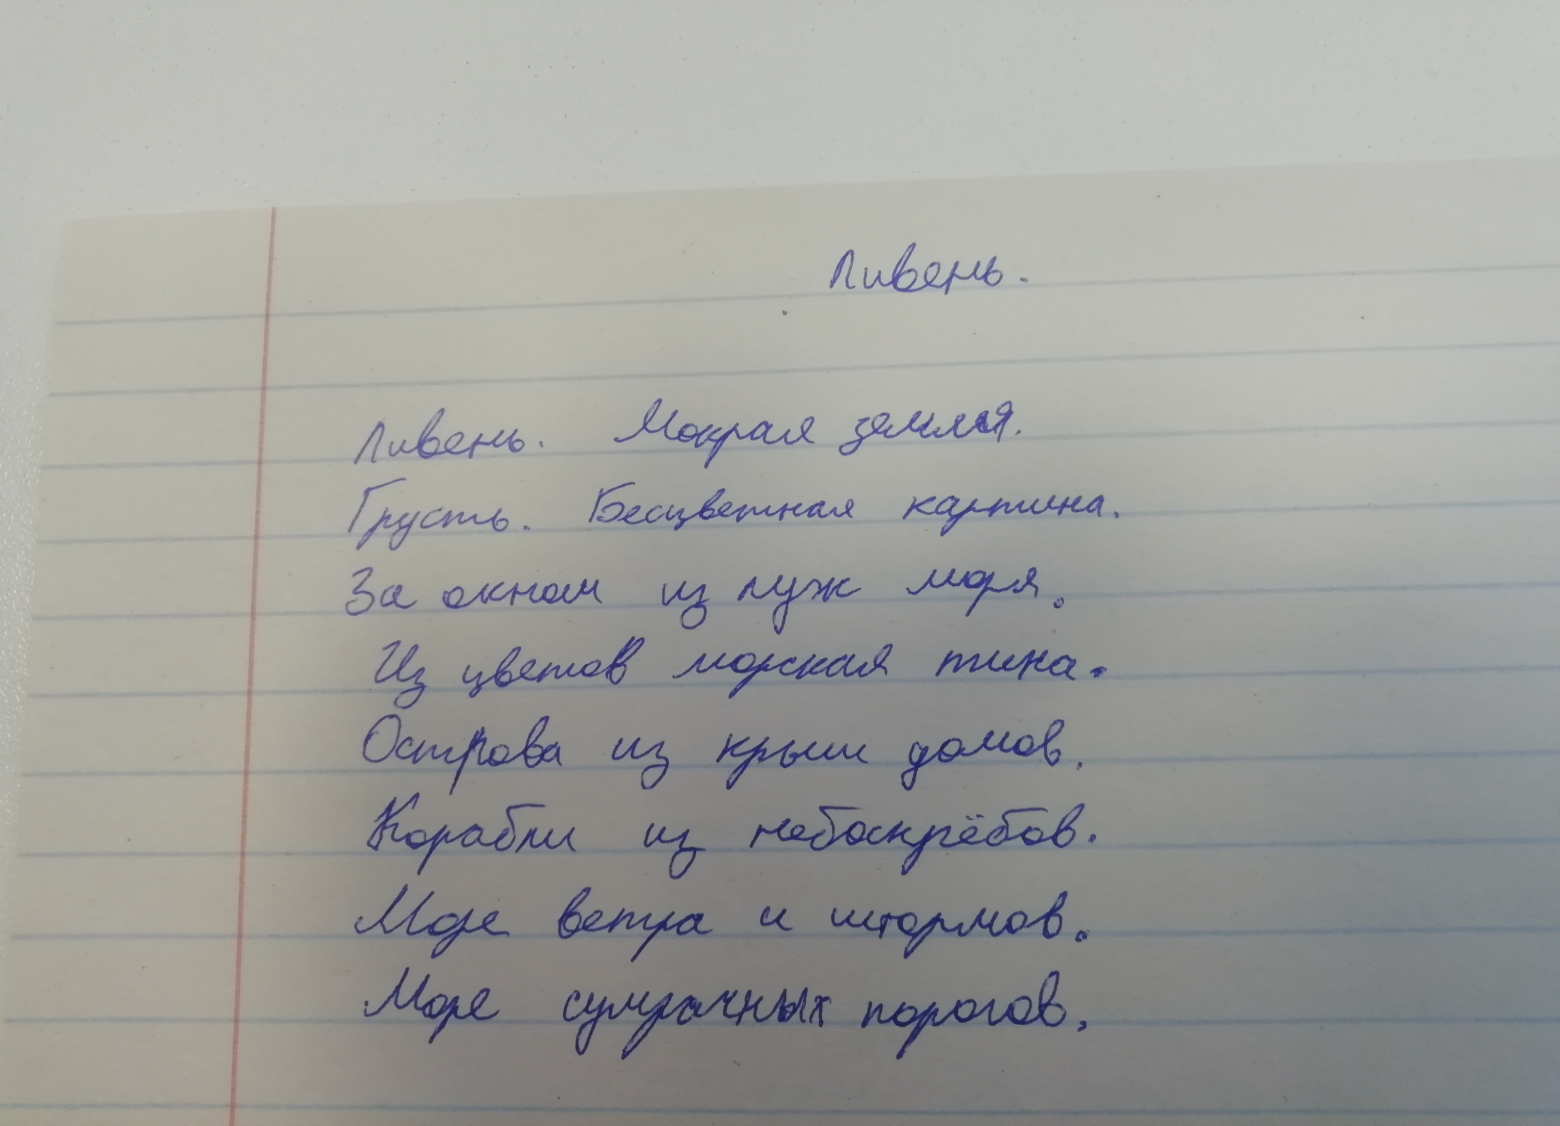 Ливень.
Ливень. Мокрая земля.
Грусть. Бесцветная картина.
За окном из луж моря.
Из цветов морская тина.
Острова из крыш домов.
Корабли из небоскрёбов.
Море ветра и штормов.
Море сумрачных порогов.